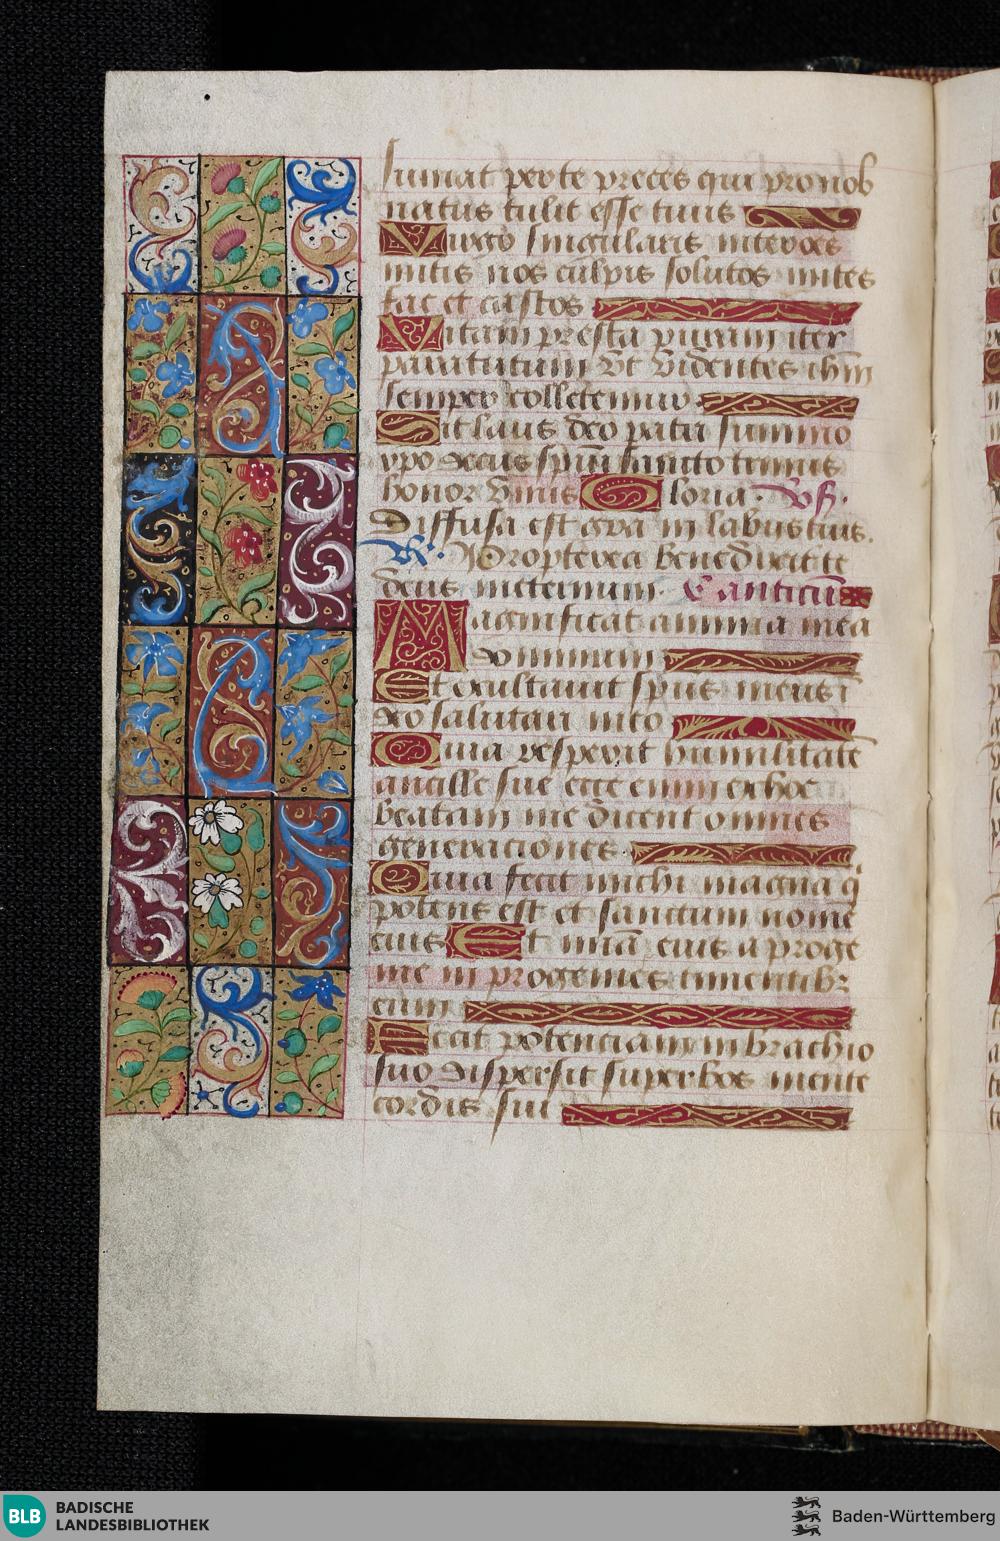 sumat per te preces qui pro nob
natus tulit esse tuus
Uirgo singularis inter oes
mitis nos culpis solutos mites
fac et castos
Uitam presta puram iter
para tutum Ut Videntes ihm
semper colletemur
Sit laus deo patri summo
xpo decus spui sancto trinus
honor Vnus Gloria. Vs.
Diffusa est gra in labiis tuis.
R. Propterea benedixit te
deus in eternum. Canticum
Magnificat anima mea
dominum
Et exultauit spus meus i
deo salutari meo
Quia respexit humilitate
ancille sue ecce enim ex hoc
beatam me dicent omnes
generaciones
Quia fecit michi magna q
potens est et sanctum nome
eius Et mia eius a proge
nie in progenies timentibz
eum
Fecit potenciam in brachio
suo dispersit superbos mente
cordis sui
BLB BADISCHE
LANDESBIBLIOTHEK
Baden-Württemberg